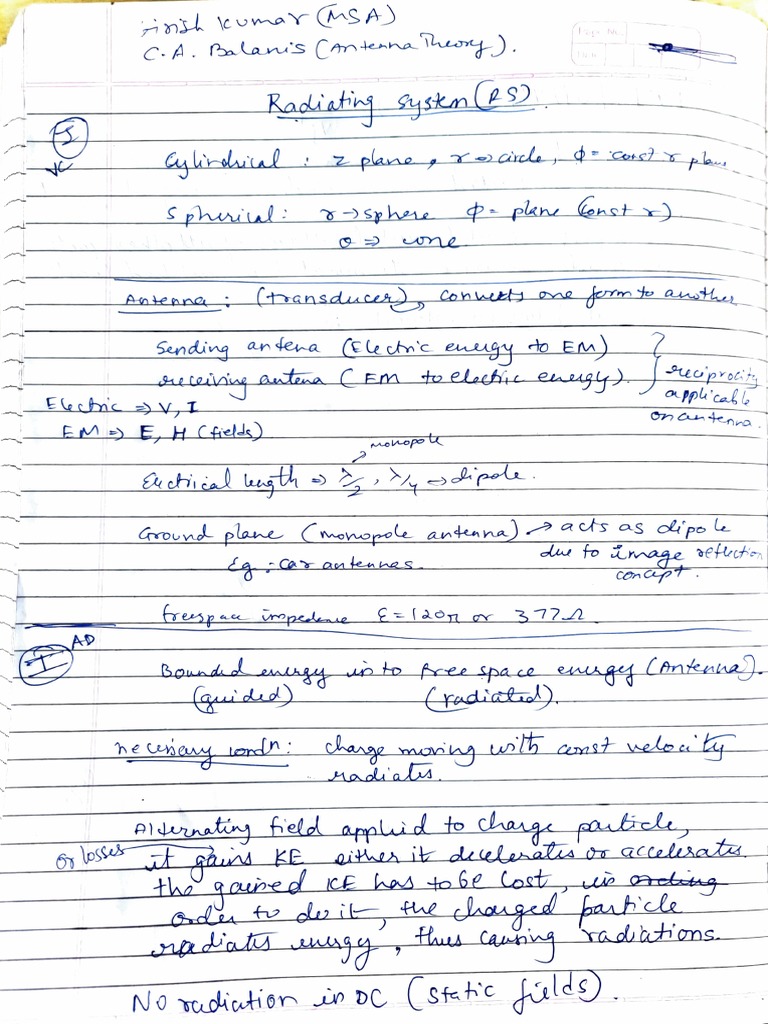 Girish Kumar (MSA)
C.A. Balanis (Antenna Theory).
Page No.
Radiating system (RS)
Cylindrical : z plane, r → circle, φ = const r plane
Spherical : r → sphere φ = plane (const r)
θ ⇒ cone
Antenna : (transducer), converts one form to another
Sending antena (Electric energy to EM)
receiving antena (EM to electric energy).
reciprocity
applicable
on antenna.
Electric ⇒ V, I
EM ⇒ E, H (fields)
monopole
Electrical length ⇒ λ/2, λ/4 → dipole.
Ground plane (monopole antenna) → acts as dipole
due to image reflection
concept.
Eg : car antennas.
freespace impedence ε = 120π or 377Ω.
AD
I
Bounded energy in to free space energy (Antenna).
(guided) (radiated).
necessary condn : charge moving with const velocity
radiates.
Alternating field applied to charge particle,
or losses
it gains KE either it decelerates or accelerates.
the gained KE has to be lost, in ording
order to do it, the charged particle
radiates energy, thus causing radiations.
No radiation in DC (static fields).